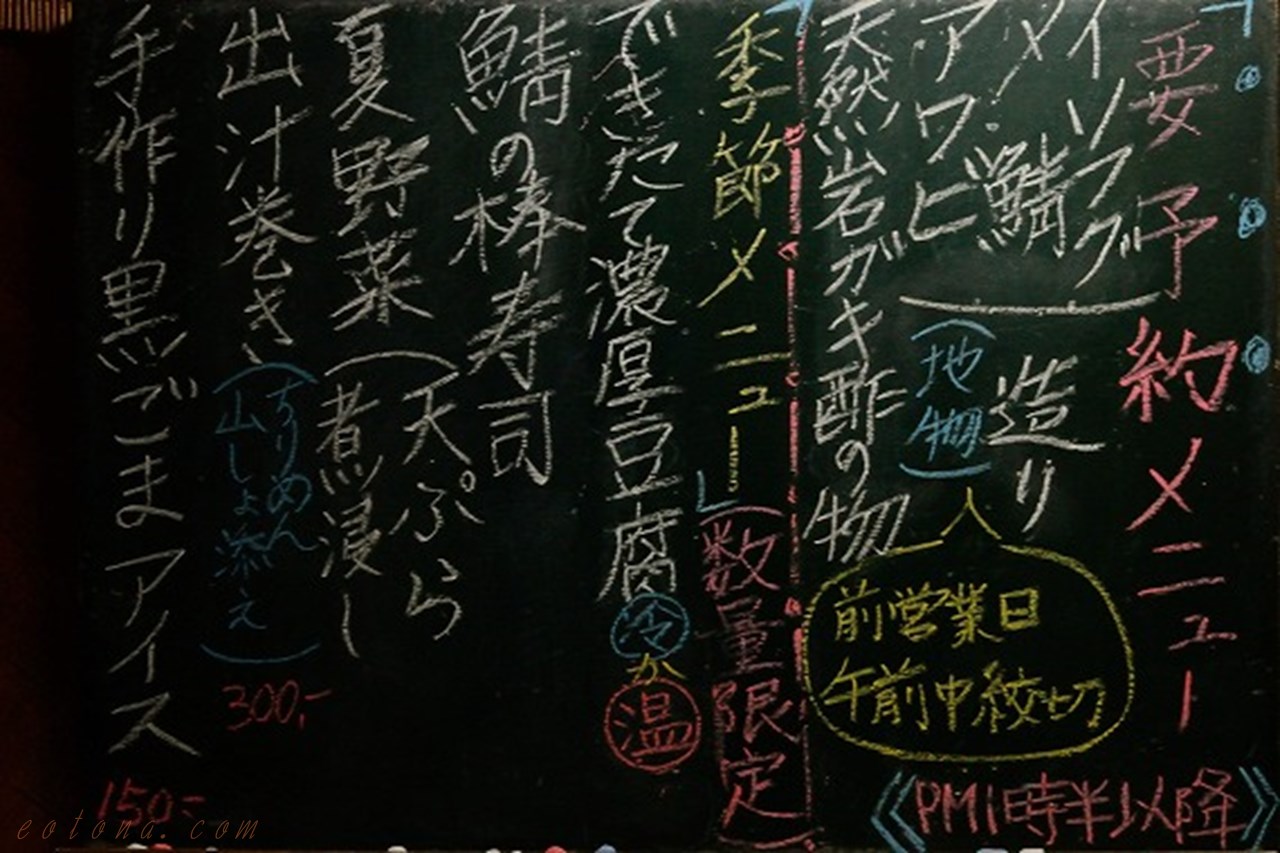 「要予約メニュー
《PM1時半以降》
イソフグ
メイ鯖
アワビ
造り
(地物)
天然岩ガキ酢の物
前営業日
午前中絞切
季節メニュー」
(数量限定)
できたて濃厚豆腐 冷か温
鯖の棒寿司
夏野菜(天ぷら
煮浸し
出汁巻き(ちりめん
山しょ添え)
300,-
手作り黒ごまアイス
150-
eotona.com